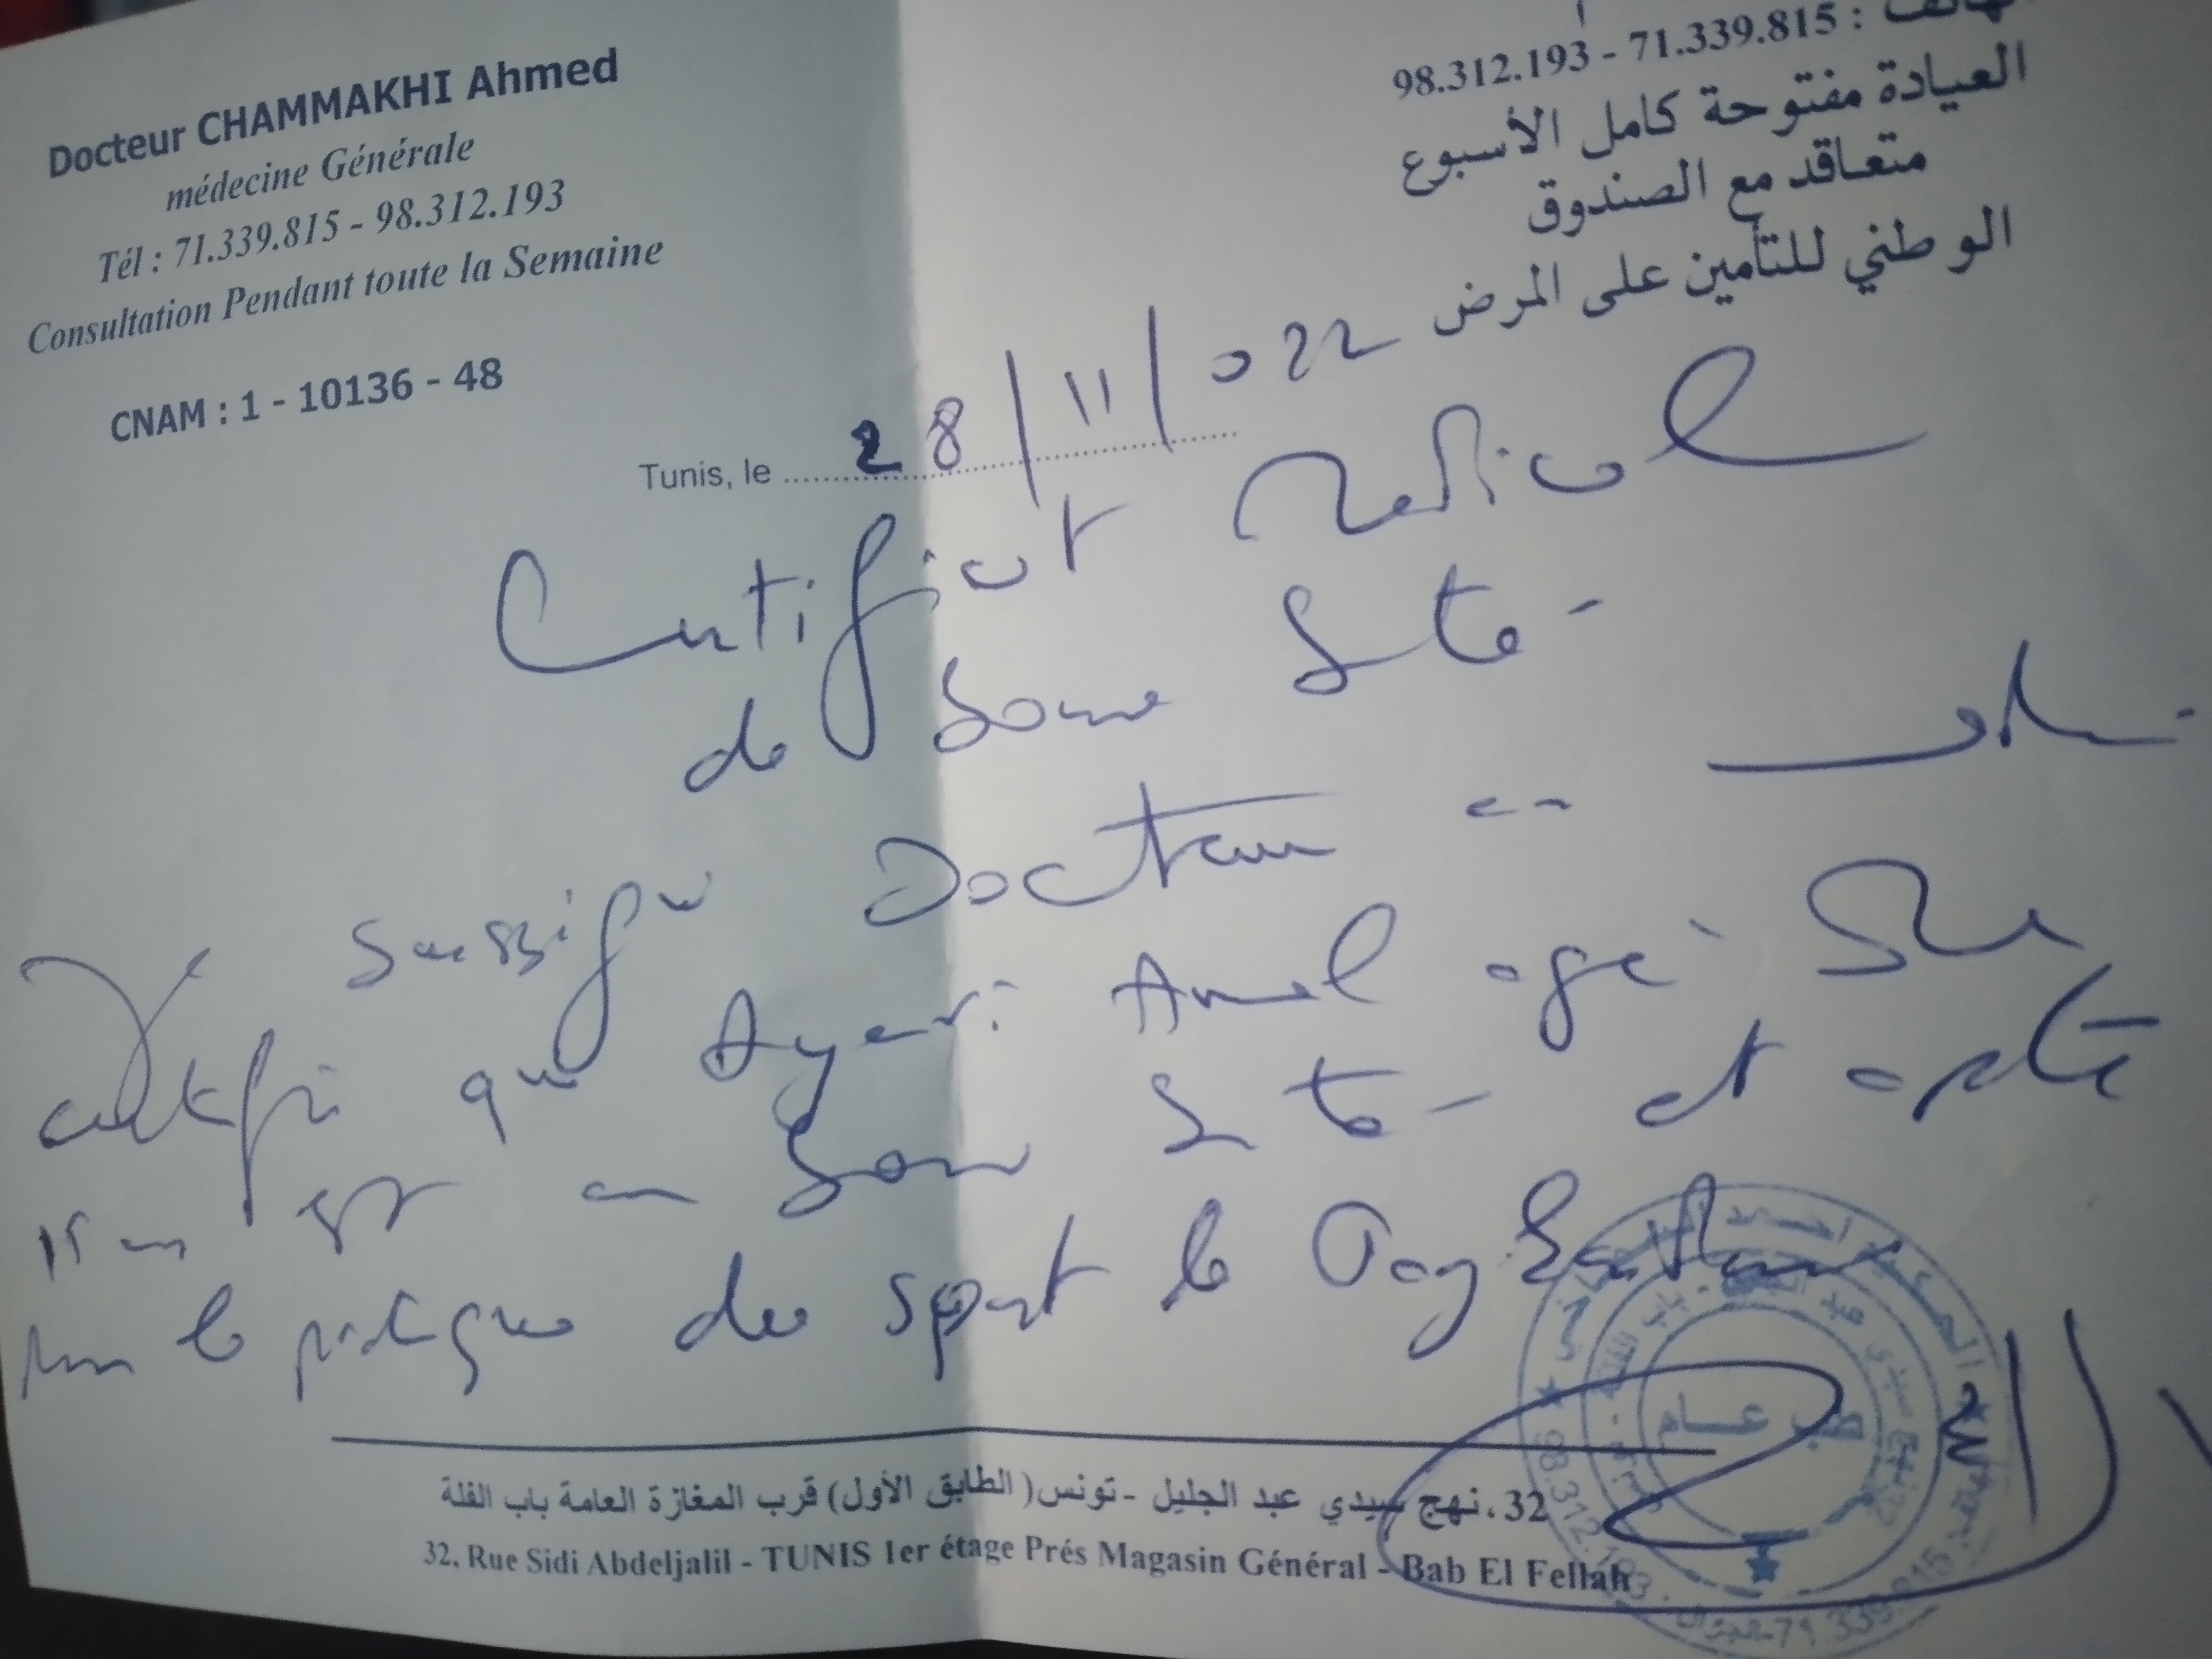 Docteur CHAMMAKHI Ahmed
médecine Générale
Tél : 71.339.815 - 98.312.193
Consultation Pendant toute la Semaine
CNAM : 1 - 10136 - 48
الهاتف : 71.339.815 - 98.312.193
العيادة مفتوحة كامل الأسبوع
متعاقد مع الصندوق
الوطني للتأمين على المرض
Tunis, le 28/11/022
Certificat Medical
de bonne Santé
Je soussigné Docteur en
certifie que Ayari Amel agé de
15 an est en bonne Santé et apte
pour la pratique du sport le
طب عام
32، نهج سيدي عبد الجليل - تونس (الطابق الأول) قرب المغازة العامة باب الفلة
32, Rue Sidi Abdeljalil - TUNIS 1er étage Prés Magasin Général - Bab El Fellah